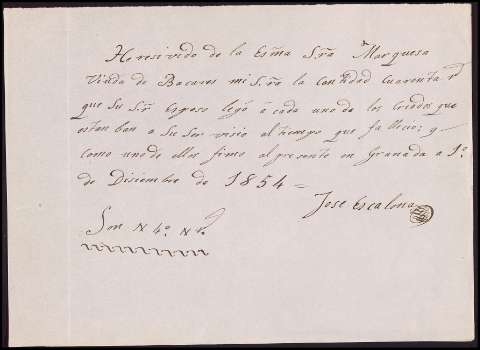 He resivido de la Esma Sra Marquesa
Viuda de Bacares mi Sra la Contidad Cuarenta rs
que Su Sr Esposo lejó á cada uno de los Criados que
estanban a Su Ser visio al tiempo que fallecio; y
como uno de ellos firmo al presente en Granada a 1º
de Disiembre de 1854 =
Jose Escalona
Son N 4º Nr.